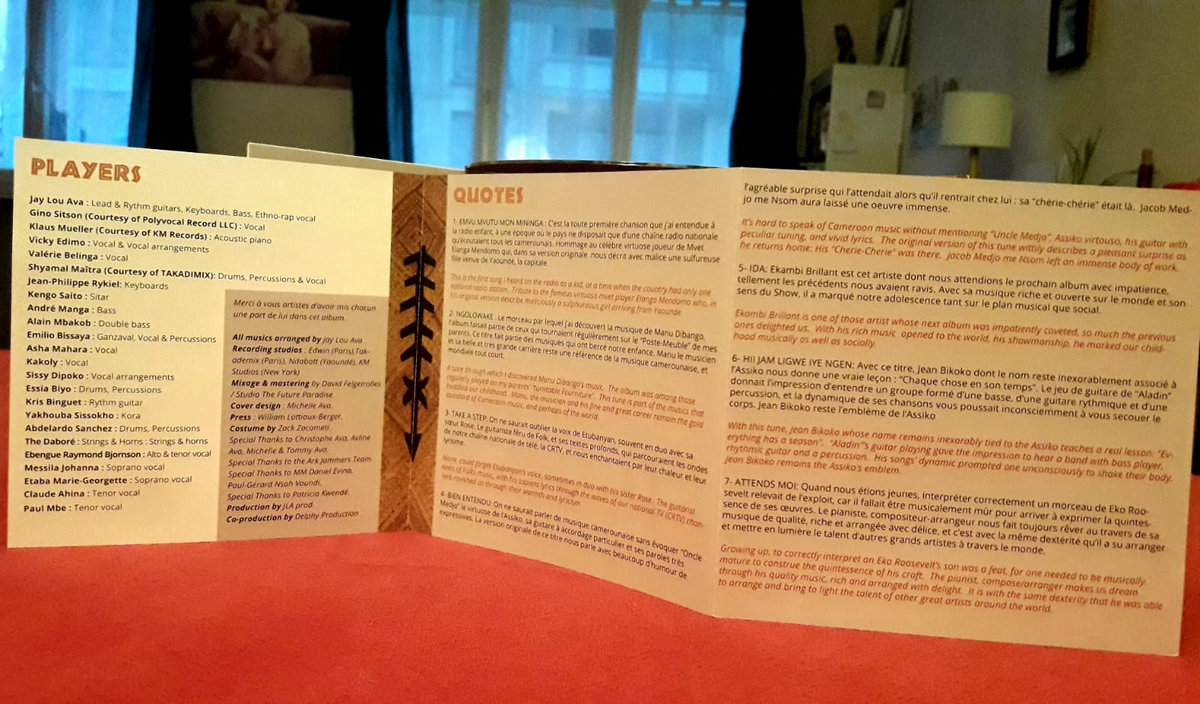 PLAYERS
Jay Lou Ava : Lead & Rythm guitars, Keyboards, Bass, Ethno-rap vocal
Gino Sitson (Courtesy of Polyvocal Record LLC) : Vocal
Klaus Mueller (Courtesy of KM Records) : Acoustic piano
Vicky Edimo : Vocal & Vocal arrangements
Valérie Belinga : Vocal
Shyamal Maîtra (Courtesy of TAKADIMIX): Drums, Percussions & Vocal
Jean-Philippe Rykiel: Keyboards
Kengo Saito : Sitar
André Manga : Bass
Alain Mbakob : Double bass
Emilio Bissaya : Ganzaval, Vocal & Percussions
Asha Mahara : Vocal
Kakoly : Vocal
Sissy Dipoko : Vocal arrangements
Essia Biyo : Drums, Percussions
Kris Binguet : Rythm guitar
Yakhouba Sissokho : Kora
Abdelardo Sanchez : Drums, Percussions
The Daboré : Strings & Horns : Strings & horns
Ebengue Raymond Bjornson : Alto & tenor vocal
Messila Johanna : Soprano vocal
Etaba Marie-Georgette : Soprano vocal
Claude Ahina : Tenor vocal
Paul Mbe : Tenor vocal
Merci à vous artistes d'avoir mis chacun
une part de lui dans cet album.
All musics arranged by Jay Lou Ava
Recording studios : Edwin (Paris),Tak-
ademia (Paris), Ndabott (Yaoundé), KM
Studios (New York)
Mixage & mastering by David Felgeirolles
/ Studio The Future Paradise
Cover design : Michelle Ava.
Press : William Lottiaux-Berger.
Costume by Zack Zacometi.
Special Thanks to Christophe Ava, Avline
Ava, Michelle & Tommy Ava.
Special Thanks to the Ark Jammers Team.
Special Thanks to MM Daniel Evina,
Paul-Gérard Nsah Voundi.
Special Thanks to Patricia Kwendé.
Production by JLA prod.
Co-production by Delphy Production.
QUOTES
1- EMVU MVUTU MON MININGA : C'est la toute première chanson que j'ai entendue à
la radio enfant, à une époque où le pays ne disposait que d'une chaîne radio nationale
qu'écoutaient tous les camerounais. Hommage au célèbre virtuose joueur de Mvet
Elanga Mendomo qui, dans sa version originale, nous décrit avec malice une sulfureuse
fille venue de Yaoundé, la capitale.
This is the first song I heard on the radio as a kid, at a time when the country had only one
national radio station. Tribute to the famous virtuoso mvet player Elanga Mendomo who, in
his original version describe maliciously a sulphurous girl arriving from Yaounde.
2- NGOLOWAKE : Le morceau par lequel j'ai découvert la musique de Manu Dibango,
l'album faisait partie de ceux qui tournaient régulièrement sur le "Poste-Meuble" de mes
parents. Ce titre fait partie des musiques qui ont bercé notre enfance. Manu le musicien
et sa belle et très grande carrière reste une référence de la musique camerounaise, et
mondiale tout court.
A tune through which I discovered Manu Dibango's music. The album was among those
regularly played on my parents' "turntable Fourniture". This tune is part of the musics that
huddled our childhood. Manu, the musician and his fine and great career remain the gold
standard of Cameroon music, and perhaps of the world.
3- TAKE A STEP: On ne saurait oublier la voix de Etubanyan, souvent en duo avec sa
sœur Rose. Le guitariste féru de Folk, et ses textes profonds, qui parcouraient les ondes
de notre chaîne nationale de télé, la CRTV, et nous enchantaient par leur chaleur et leur
lyrisme.
None could forget Etubanyan's voice, sometimes in duo with his sister Rose. The guitarist
keen of Folks music, with his sapient lyrics through the waves of our national TV (CRTV) chan-
nels ravished us through their warmth and lyricism.
4- BIEN ENTENDU: On ne saurait parler de musique camerounaise sans évoquer "Oncle
Medjo" le virtuose de l'Assiko, sa guitare à accordage particulier et ses paroles très
expressives. La version originale de ce titre nous parle avec beaucoup d'humour de
l'agréable surprise qui l'attendait alors qu'il rentrait chez lui : sa "chérie-chérie" était là. Jacob Med-
jo me Nsom aura laissé une oeuvre immense.
It's hard to speak of Cameroon music without mentioning "Uncle Medjo", Assiko virtouso, his guitar with
peculiar tuning, and vivid lyrics. The original version of this tune wittily describes a pleasant surprise as
he returns home: His "Cherie-Cherie" was there. Jacob Medjo me Nsom left an immense body of work.
5- IDA: Ekambi Brillant est cet artiste dont nous attendions le prochain album avec impatience,
tellement les précédents nous avaient ravis. Avec sa musique riche et ouverte sur le monde et son
sens du Show, il a marqué notre adolescence tant sur le plan musical que social.
Ekombi Brillant is one of those artist whose next album was impatiently coveted, so much the previous
ones delighted us. With his rich music opened to the world, his showmanship, he marked our child-
hood musically as well as socially.
6- HIJAM LIGWE IYE NGEN: Avec ce titre, Jean Bikoko dont le nom reste inexorablement associé à
l'Assiko nous donne une vraie leçon : "Chaque chose en son temps". Le jeu de guitare de "Aladin"
donnait l'impression d'entendre un groupe formé d'une basse, d'une guitare rythmique et d'une
percussion, et la dynamique de ses chansons vous poussait inconsciemment à vous secouer le
corps. Jean Bikoko reste l'emblème de l'Assiko
With this tune, Jean Bikoko whose name remains inexorably tied to the Assiko teaches a real lesson: "Ev-
erything has a season". "Aladin"'s guitar playing gave the impression to hear a band with bass player,
rhythmic guitar and a percussion. His songs' dynamic prompted one unconsciously to shake their body.
Jean Bikoko remains the Assiko's emblem.
7- ATTENDS MOI: Quand nous étions jeunes, interpréter correctement un morceau de Eko Roo-
sevelt relevait de l'exploit, car il fallait être musicalement mûr pour arriver à exprimer la quintes-
sence de ses œuvres. Le pianiste, compositeur-arrangeur nous fait toujours rêver au travers de sa
musique de qualité, riche et arrangée avec délice, et c'est avec la même dextérité qu'il a su arranger
et mettre en lumière le talent d'autres grands artistes à travers le monde.
Growing up, to correctly interpret an Eko Roosevelt's son was a feat, for one needed to be musically
mature to construe the quintessence of his craft. The pianist, compose/arranger makes us dream
through his quality music, rich and arranged with delight. It is with the same dexterity that he was able
to arrange and bring to light the talent of other great artists around the world.